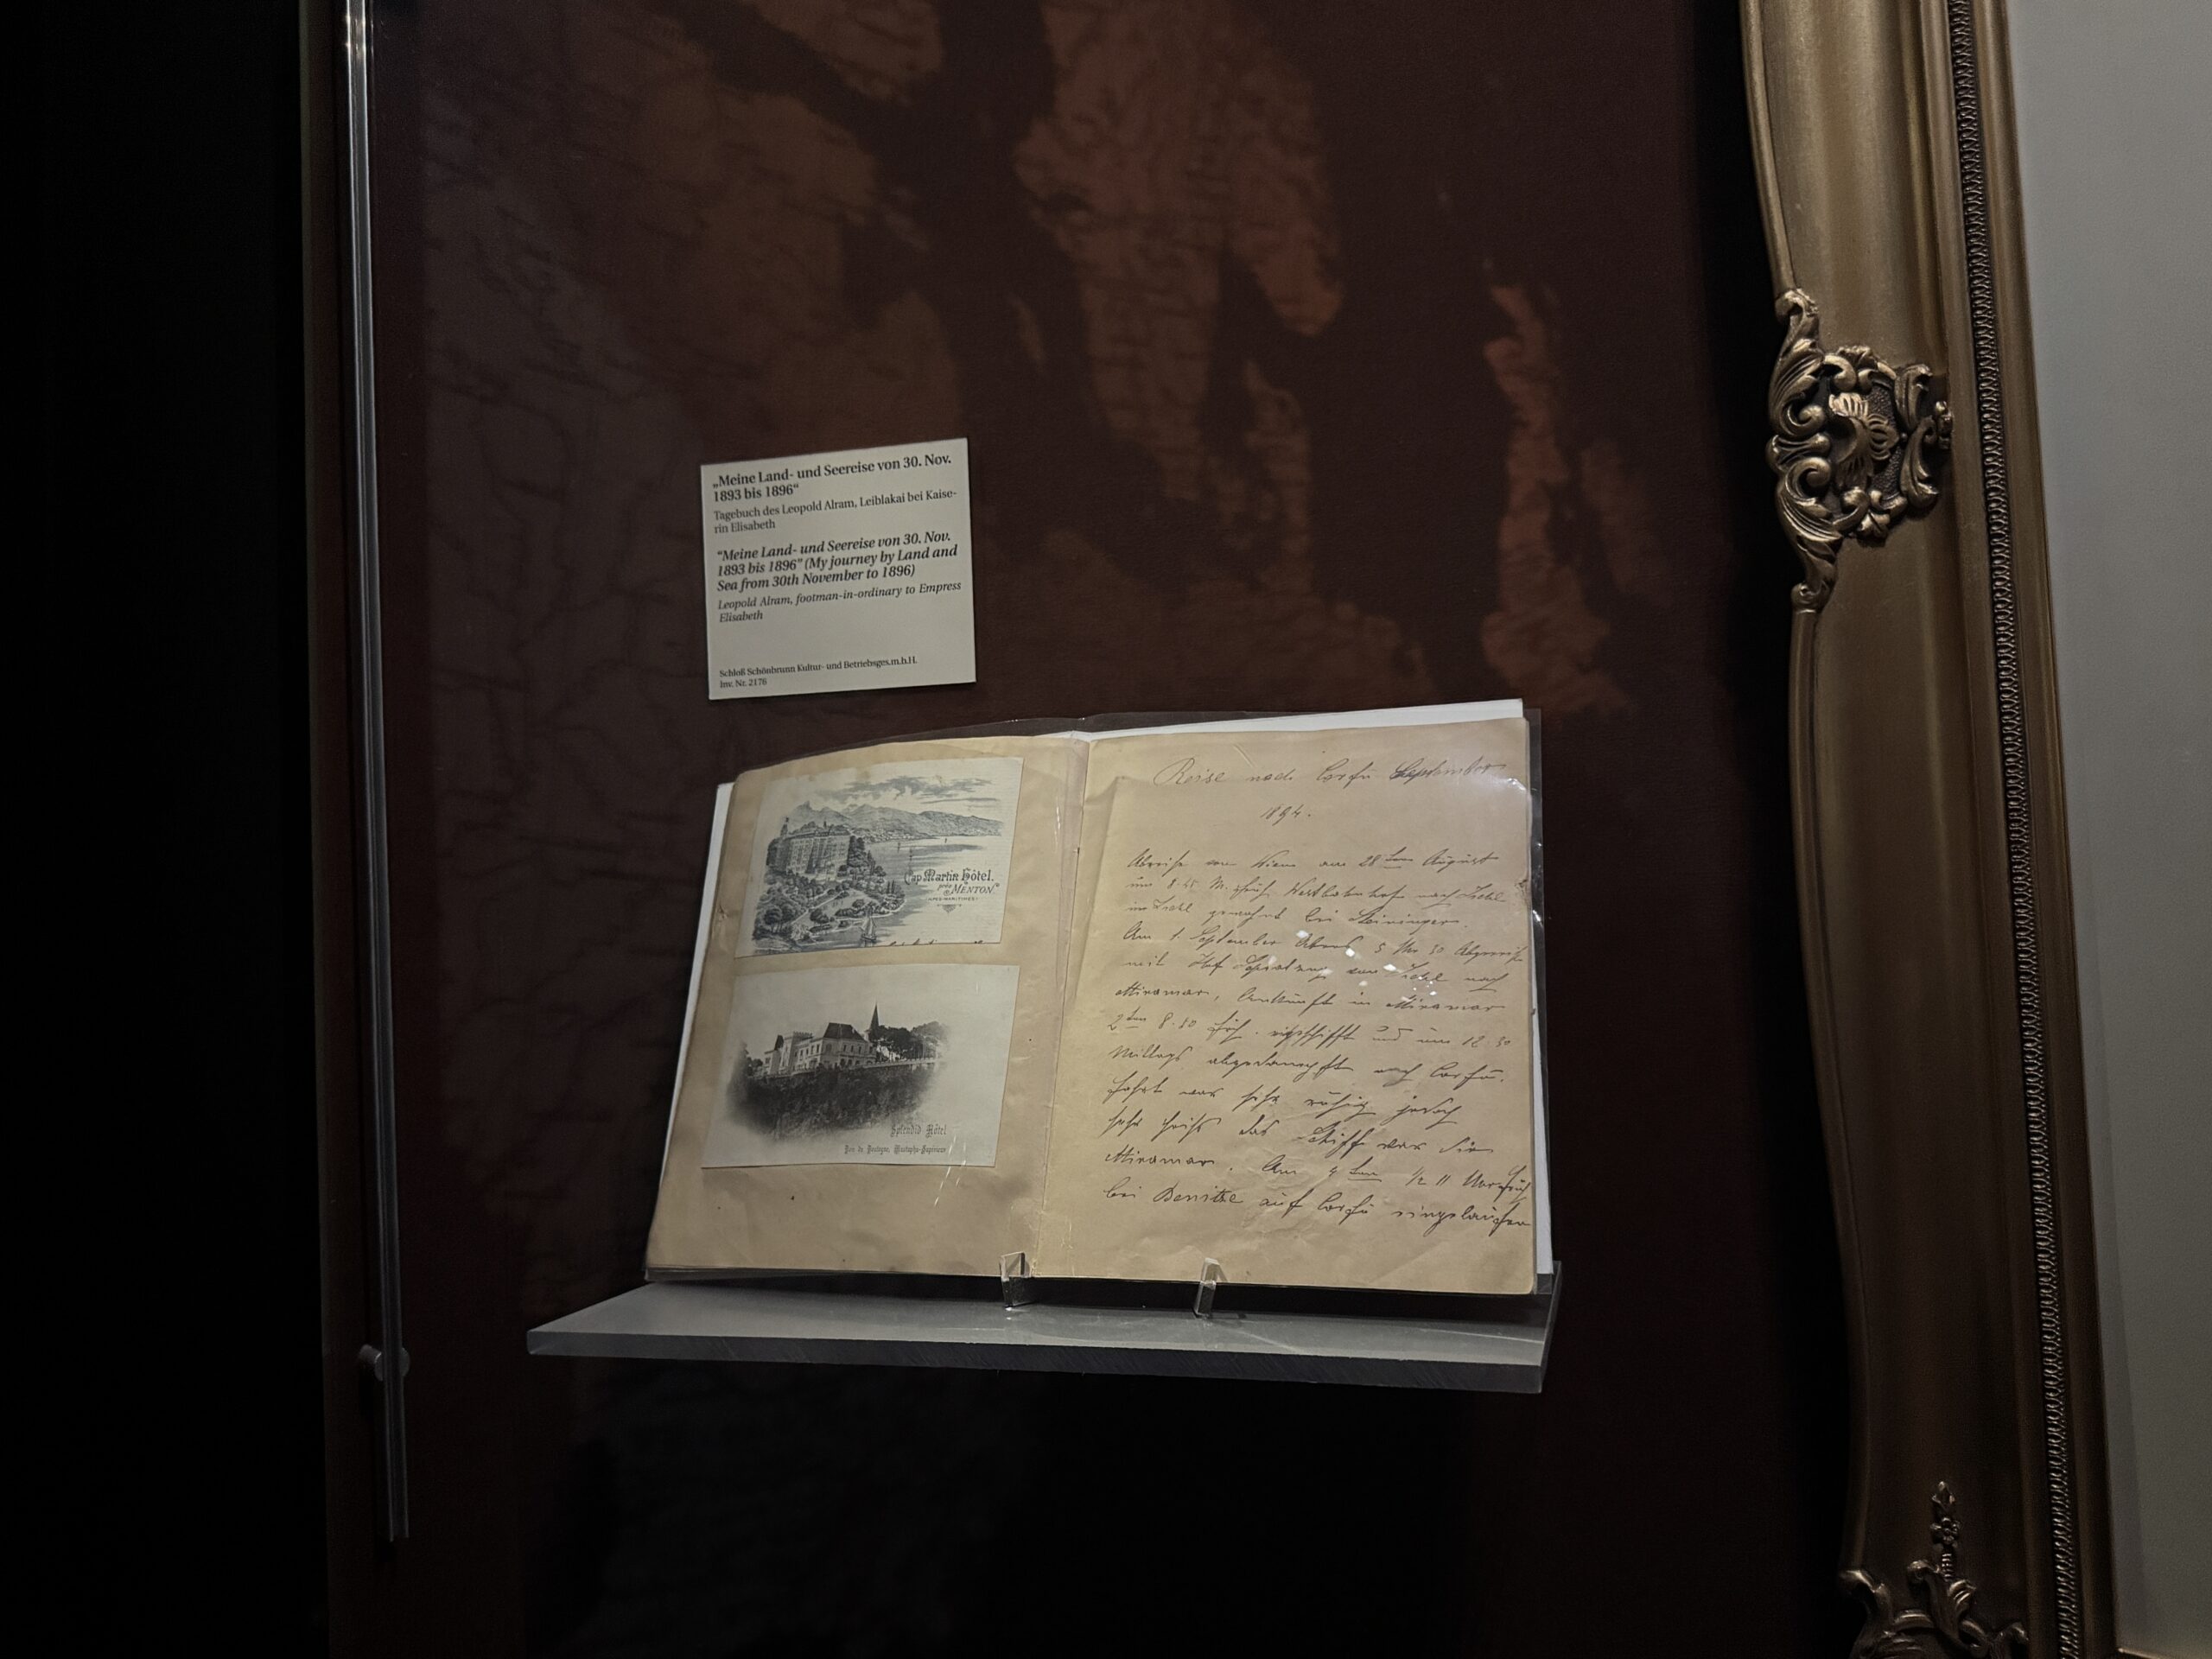 „Meine Land- und Seereise von 30. Nov.
1893 bis 1896“
Tagebuch des Leopold Alram, Leiblakai bei Kaise-
rin Elisabeth
“Meine Land- und Seereise von 30. Nov.
1893 bis 1896” (My journey by Land and
Sea from 30th November to 1896)
Leopold Alram, footman-in-ordinary to Empress
Elisabeth
Schloß Schönbrunn Kultur- und Betriebsges.m.b.H.
Inv. Nr. 2176
Cap Martin Hôtel.
près MENTON
(ALPES-MARITIMES)
Splendid Hôtel
Mustapha-Supérieur
Reise nach Corfu September
1894.
Abreise von Wien am 28ten August
um 8.45 M. früh Westbahnhof nach Ischl
in Ischl gewohnt bei
Am 1. September Abends 5 Uhr 30 Abgereist
mit Hof von Ischl nach
Miramar, Ankunft in Miramar
2ten 8.10 früh. eigeschifft und um 12 30
Mittags abgedampft nach Corfu.
Fahrt war sehr ruhig jedoch
sehr heiss das Schiff war die
Miramar. Am 4ten 1/2 11 Uhr früh
bei Benitze auf Corfu eingelaufen